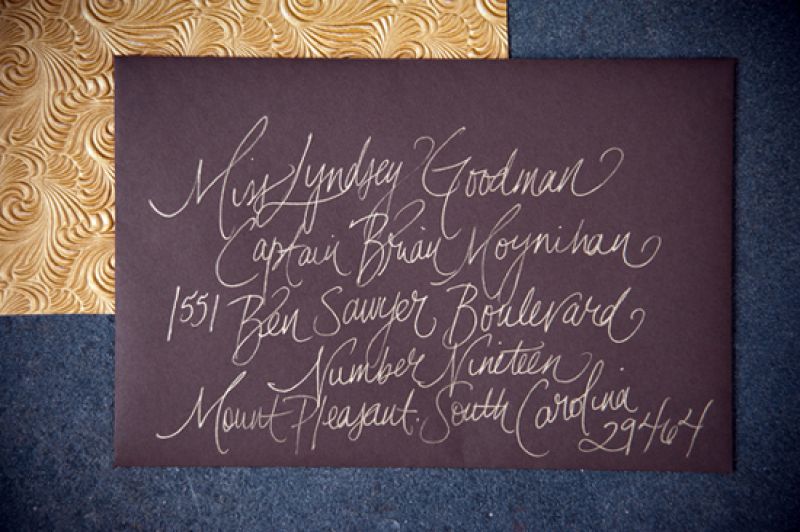 Miss Lyndsey Goodman
Captain Brian Moynihan
1551 Ben Sawyer Boulevard
Number Nineteen
Mount Pleasant, South Carolina
29464